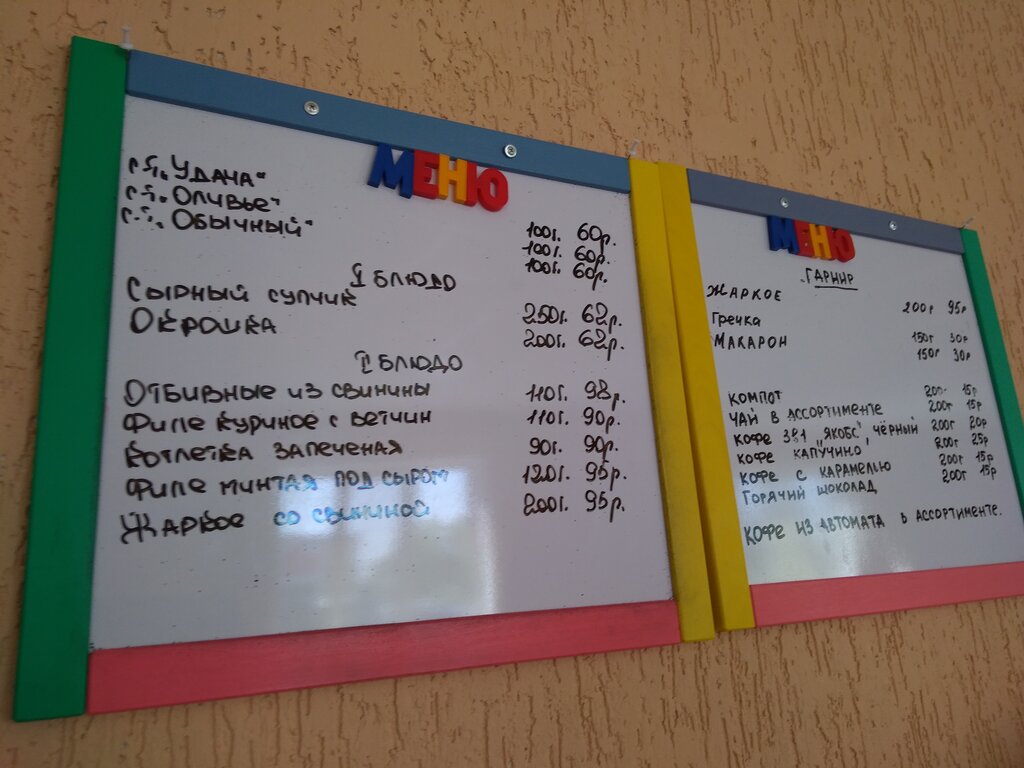 МЕНЮ
г.п. „Удача"
г.п. „Оливье"
г.п. „Обычный"
100г. 60р.
100г. 60р.
100г. 60р.
I блюдо
Сырный супчик 250г. 62р.
Окрошка 200г. 62р.
II блюдо
Отбивные из свинины 110г. 98р.
Филе куриное с ветчин 110г. 90р.
Котлетка запеченая 90г. 90р.
Филе минтая под сыром 120г. 95р.
Жаркое со свининой 200г. 95р.
МЕНЮ
Гарнир
Жаркое 200г 95р
Гречка 150г 30р
Макарон 150г 30р
Компот 200г 15р
Чай в ассортименте 200г 15р
Кофе 3в1 „Якобс", чёрный 200г 20р
Кофе капучино 200г 25р
Кофе с карамелью 200г 15р
Горячий шоколад 200г 15р
Кофе из автомата в ассортименте.